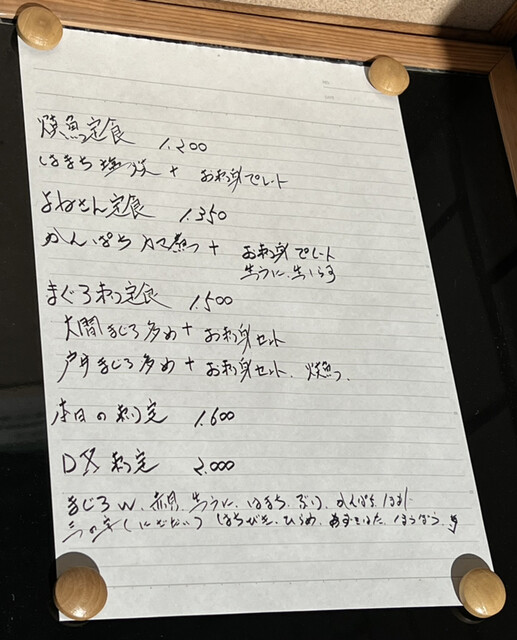 焼魚定食 1.200
はまち塩焼 + お刺身プレート
よねさん定食 1.350
かんぱちカマ煮つ + お刺身プレート
生うに、生しらす
まぐろ刺定食 1.500
大間まぐろ多め + お刺身セット
戸井まぐろ多め + お刺身セット、焼魚
本日の刺定 1.600
DX刺定 2.000
まぐろW、赤貝、生うに、はまち、ぶり、かんぱち
三の字(にざだい) はちびき、ひらめ、あずきはた、ほうぼう